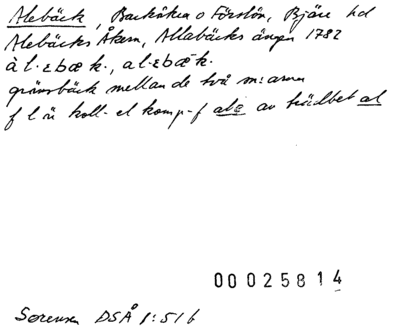 Alebäck, Backåkra o Förslöv, Bjäre hd
Alebäcks Åkern, Allabäcks ängen 1782
à l · ɛ b æ k ·, a l · ɛ b æ̀ k ·
gränsbäck mellan de två m:arna
f l är koll- el komp-f ale av trädbet al
00025814
Sørensen DSÅ 1:516